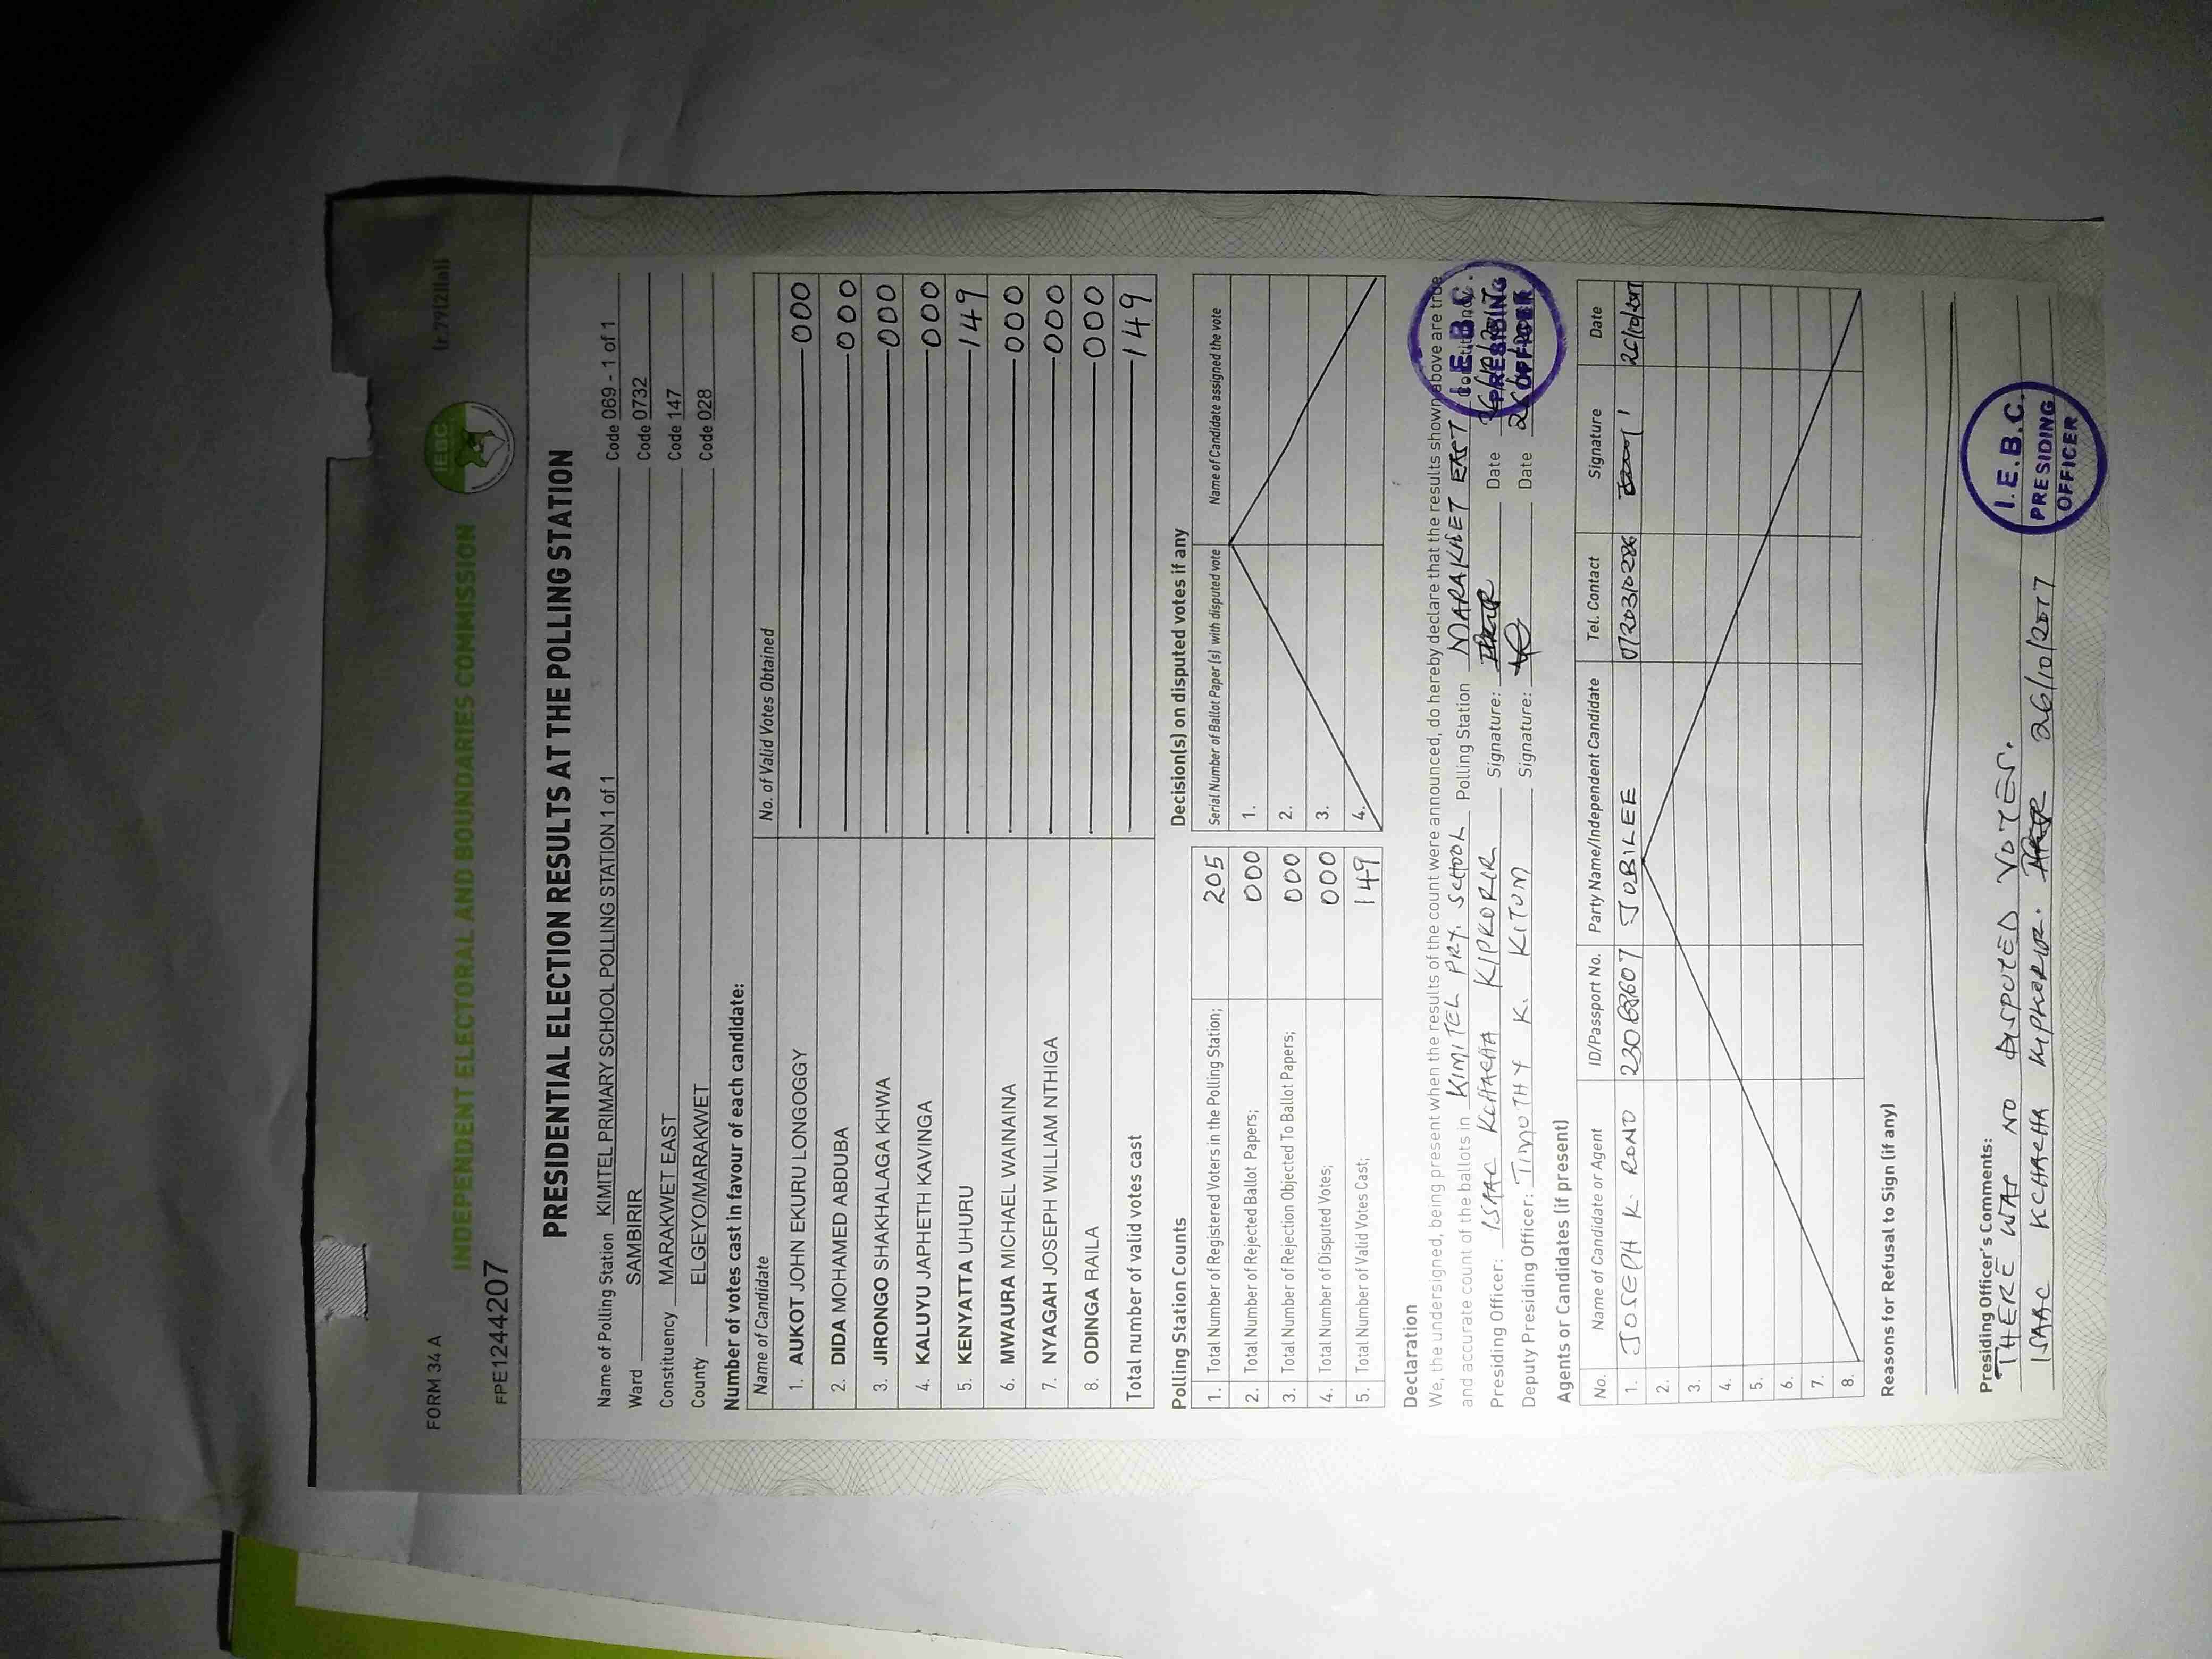 FORM 34 A
(r.79(2)(a))
INDEPENDENT ELECTORAL AND BOUNDARIES COMMISSION
IEBC
FPE1244207
PRESIDENTIAL ELECTION RESULTS AT THE POLLING STATION
Name of Polling Station KIMITEL PRIMARY SCHOOL POLLING STATION 1 of 1 Code 069 - 1 of 1
Ward SAMBIRIR Code 0732
Constituency MARAKWET EAST Code 147
County ELGEYO/MARAKWET Code 028
Number of votes cast in favour of each candidate:
Name of Candidate No. of Valid Votes Obtained
1. AUKOT JOHN EKURU LONGOGGY 000
2. DIDA MOHAMED ABDUBA 000
3. JIRONGO SHAKHALAGA KHWA 000
4. KALUYU JAPHETH KAVINGA 000
5. KENYATTA UHURU 149
6. MWAURA MICHAEL WAINAINA 000
7. NYAGAH JOSEPH WILLIAM NTHIGA 000
8. ODINGA RAILA 000
Total number of valid votes cast 149
Polling Station Counts
1. Total Number of Registered Voters in the Polling Station; 205
2. Total Number of Rejected Ballot Papers; 000
3. Total Number of Rejection Objected To Ballot Papers; 000
4. Total Number of Disputed Votes; 000
5. Total Number of Valid Votes Cast; 149
Decision(s) on disputed votes if any
Serial Number of Ballot Paper (s) with disputed vote Name of Candidate assigned the vote
1.
2.
3.
4.
Declaration
We, the undersigned, being present when the results of the count were announced, do hereby declare that the results shown above are true
and accurate count of the ballots in KIMITEL PRY. SCHOOL Polling Station MARAKWET EAST Constituency.
Presiding Officer: ISAAC KCHACHA KIPKORIR Signature: Date 26/10/2017
Deputy Presiding Officer: TIMOTHY K. KITUM Signature: Date
I.E.B.C.
PRESIDING
OFFICER
Agents or Candidates (if present)
No. Name of Candidate or Agent ID/Passport No. Party Name/Independent Candidate Tel. Contact Signature Date
1. JOSEPH K. RONO JUBILEE 0720310286 26/10/2017
2.
3.
4.
5.
6.
7.
8.
Reasons for Refusal to Sign (if any)
Presiding Officer's Comments:
THERE WAS NO DISPUTED VOTES.
ISAAC KCHACHA KIPKORIR. 26/10/2017
I.E.B.C.
PRESIDING
OFFICER